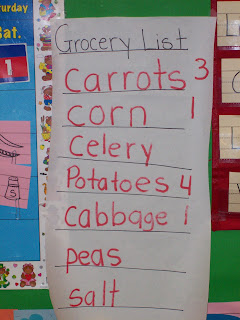 Saturday
Sat.
1
Grocery List
Carrots 3
corn 1
celery
Potatoes 4
Cabbage 1
peas
salt